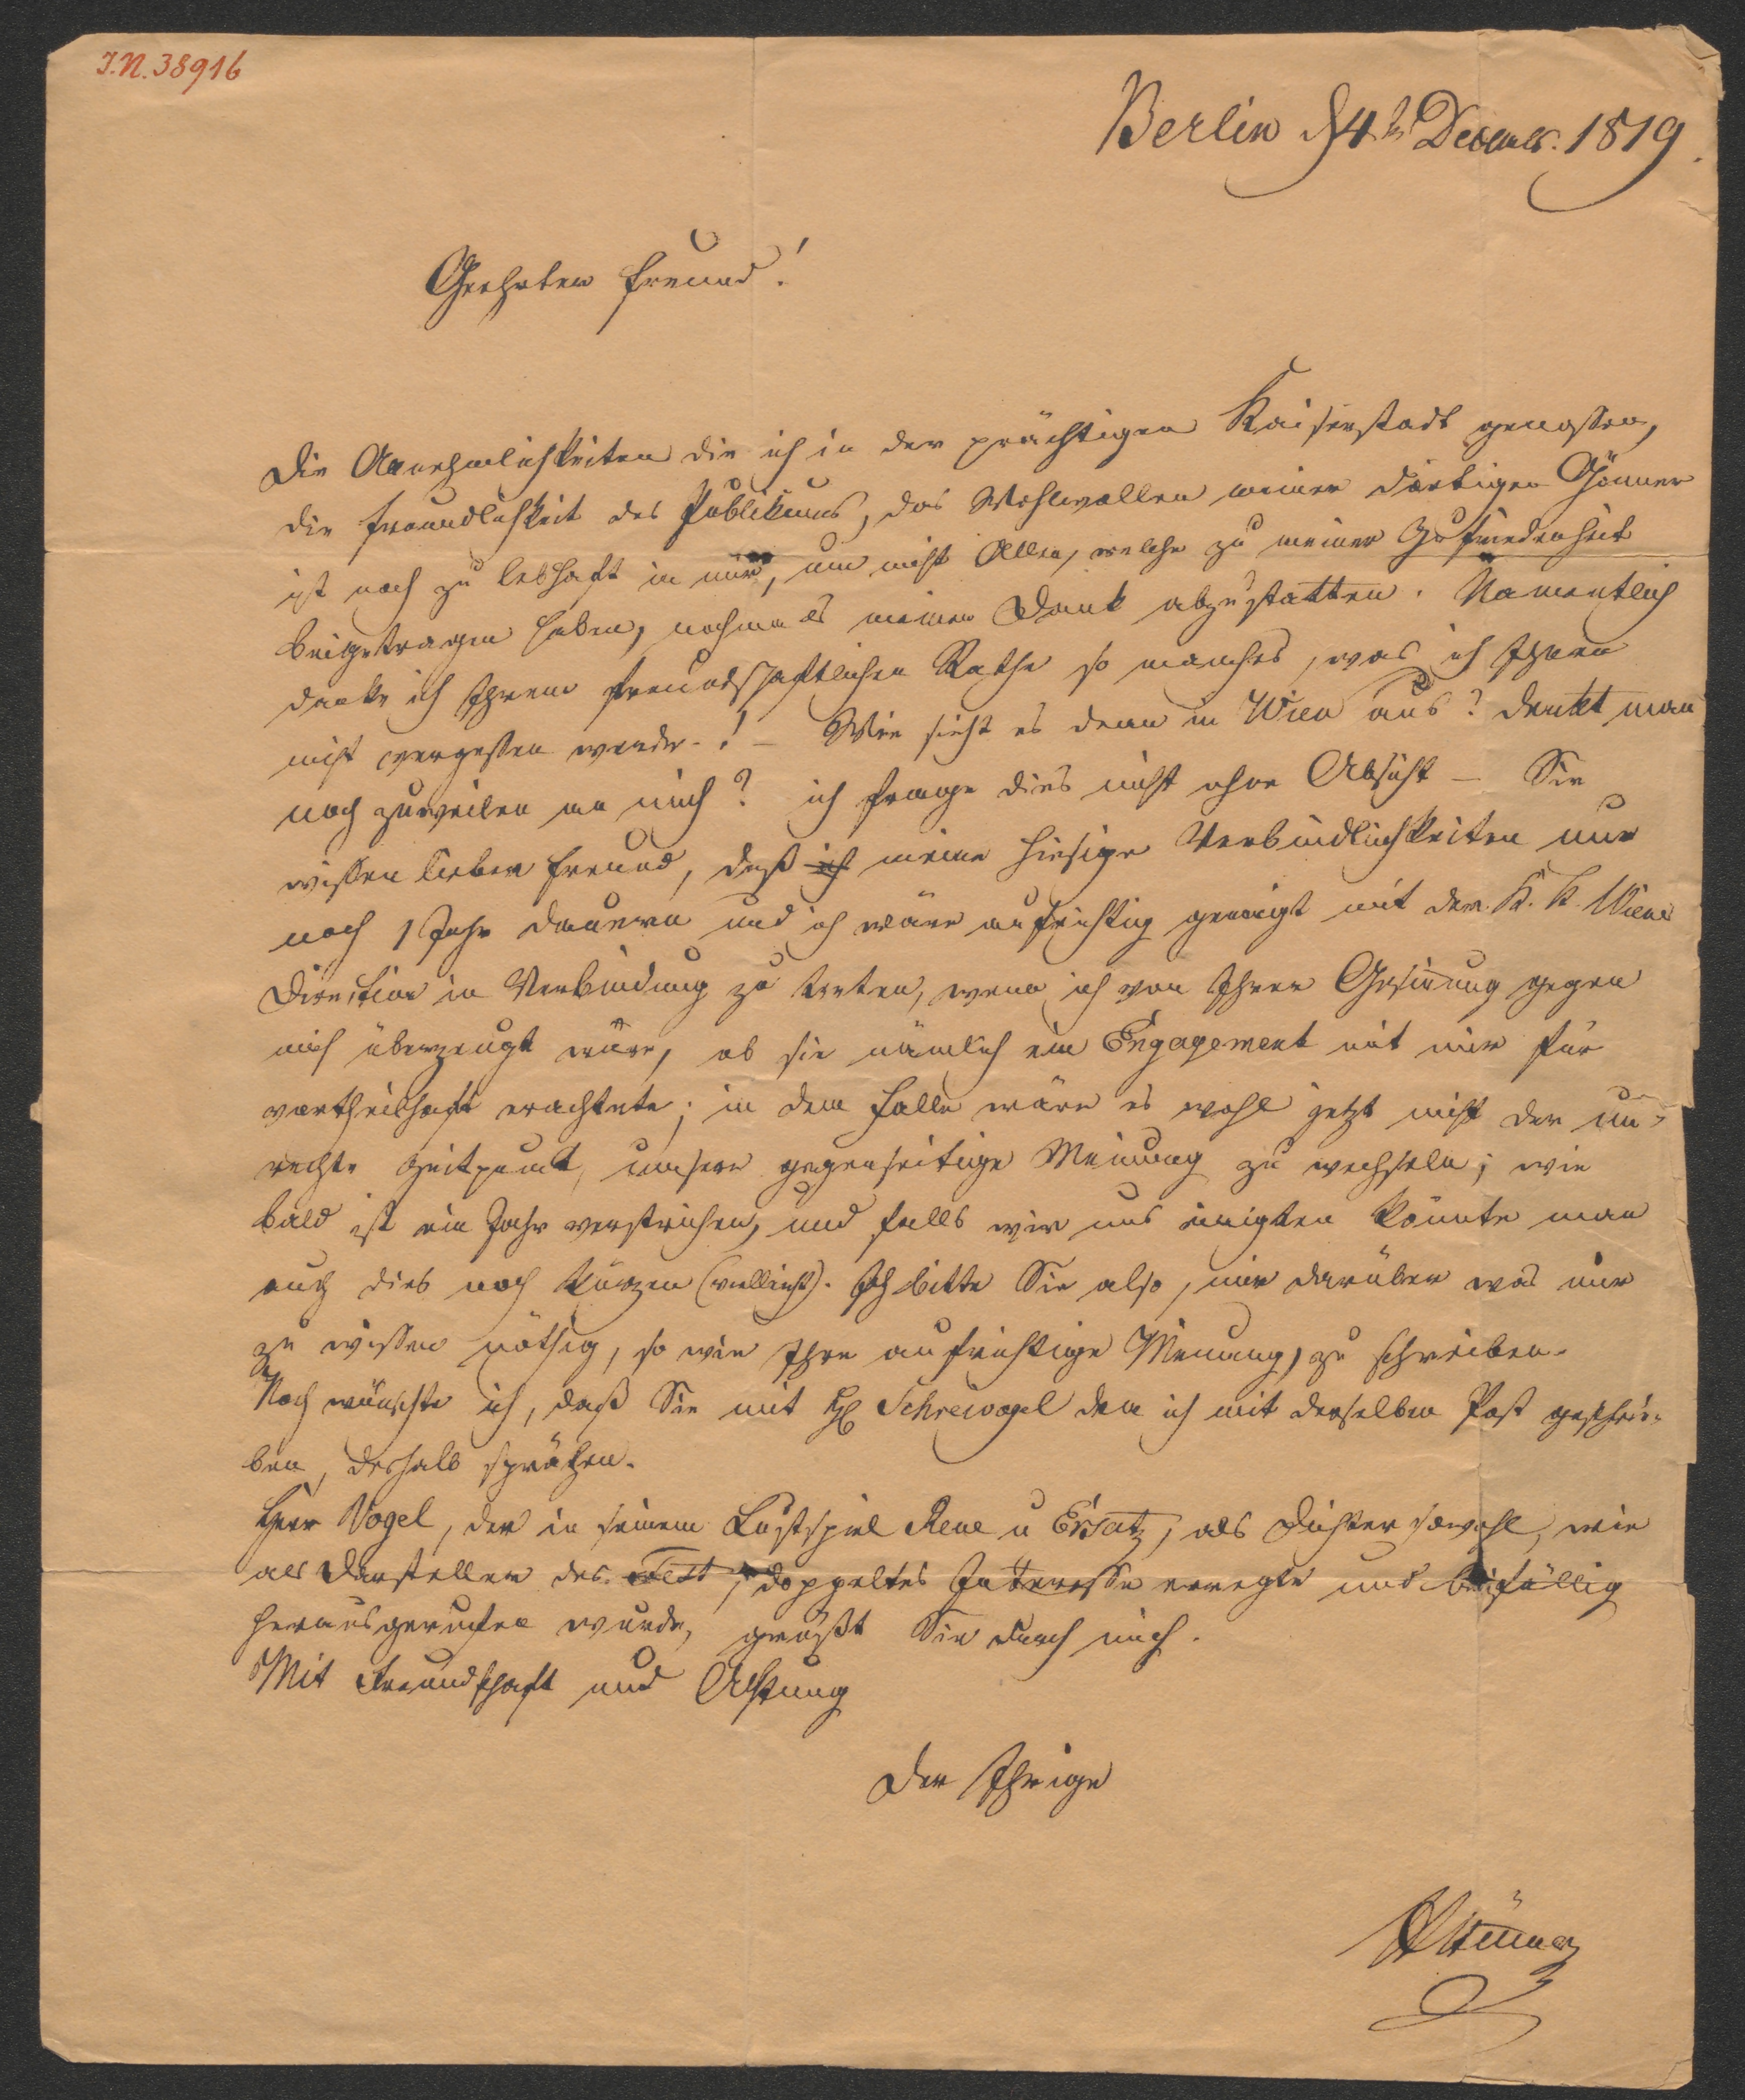 I.N. 38916
Berlin d 4t Decembr. 1819.
Geehrter Freund!
Die Annehmlichkeiten die ich in der prächtigen Kaiserstadt genossen,
die Freundlichkeit des Publikums, das Wohlwollen meiner dortigen Gönner
ist noch zu lebhaft in mir, um nicht Allen, welche zu meiner Zufriedenheit
beigetragen haben, nochmals meinen Dank abzustatten. Namentlich
danke ich Ihrem freundschaftlichen Rathe so manches, was ich Ihnen
nicht vergessen werde.! – Wie sieht es denn in Wien aus? denkt man
noch zuweilen an mich? ich frage dies nicht ohne Absicht – Sie
wissen lieber Freund, daß ich meine hiesige Verbindlichkeiten nur
noch 1 Jahr dauern und ich wäre aufrichtig geneigt mit der K. K. Wiener
Direction in Verbindung zu treten, wenn ich von Ihrer Gesinnung gegen
mich überzeugt wäre, ob sie nämlich ein Engagement mit mir für
vortheilhaft erachtete; in dem Falle wäre es wohl jetzt nicht der un-
rechte Zeitpunkt, unsere gegenseitige Meinung zu wechseln; wie
bald ist ein Jahr verstrichen, und falls wir uns einigten könnte man
auch dies noch kürzen (vielleicht). Ich bitte Sie also, mir darüber was mir
zu wissen nöthig, so wie Ihre aufrichtige Meinung, zu schreiben.
Noch wünschte ich, daß Sie mit H Schreivogel dem ich mit derselben Post geschrie-
ben, deshalb sprächen.
Herr Vogel, der in seinem Lustspiel Reue u Ersatz, als Dichter sowohl, wie
als Darsteller des , doppeltes Interesse erregte und beifällig
herausgerufen wurde, grüßt Sie durch mich.
Mit Freundschaft und Achtung
Der Ihrige